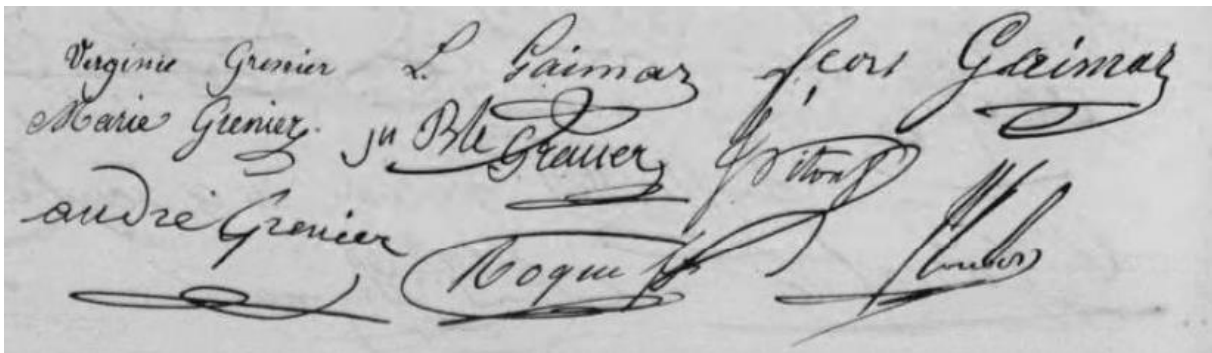 Virginie Grenier L. Gaimar fçois Gaimar
Marie Grenier jn Bte Grauer
andré Grenier Roque